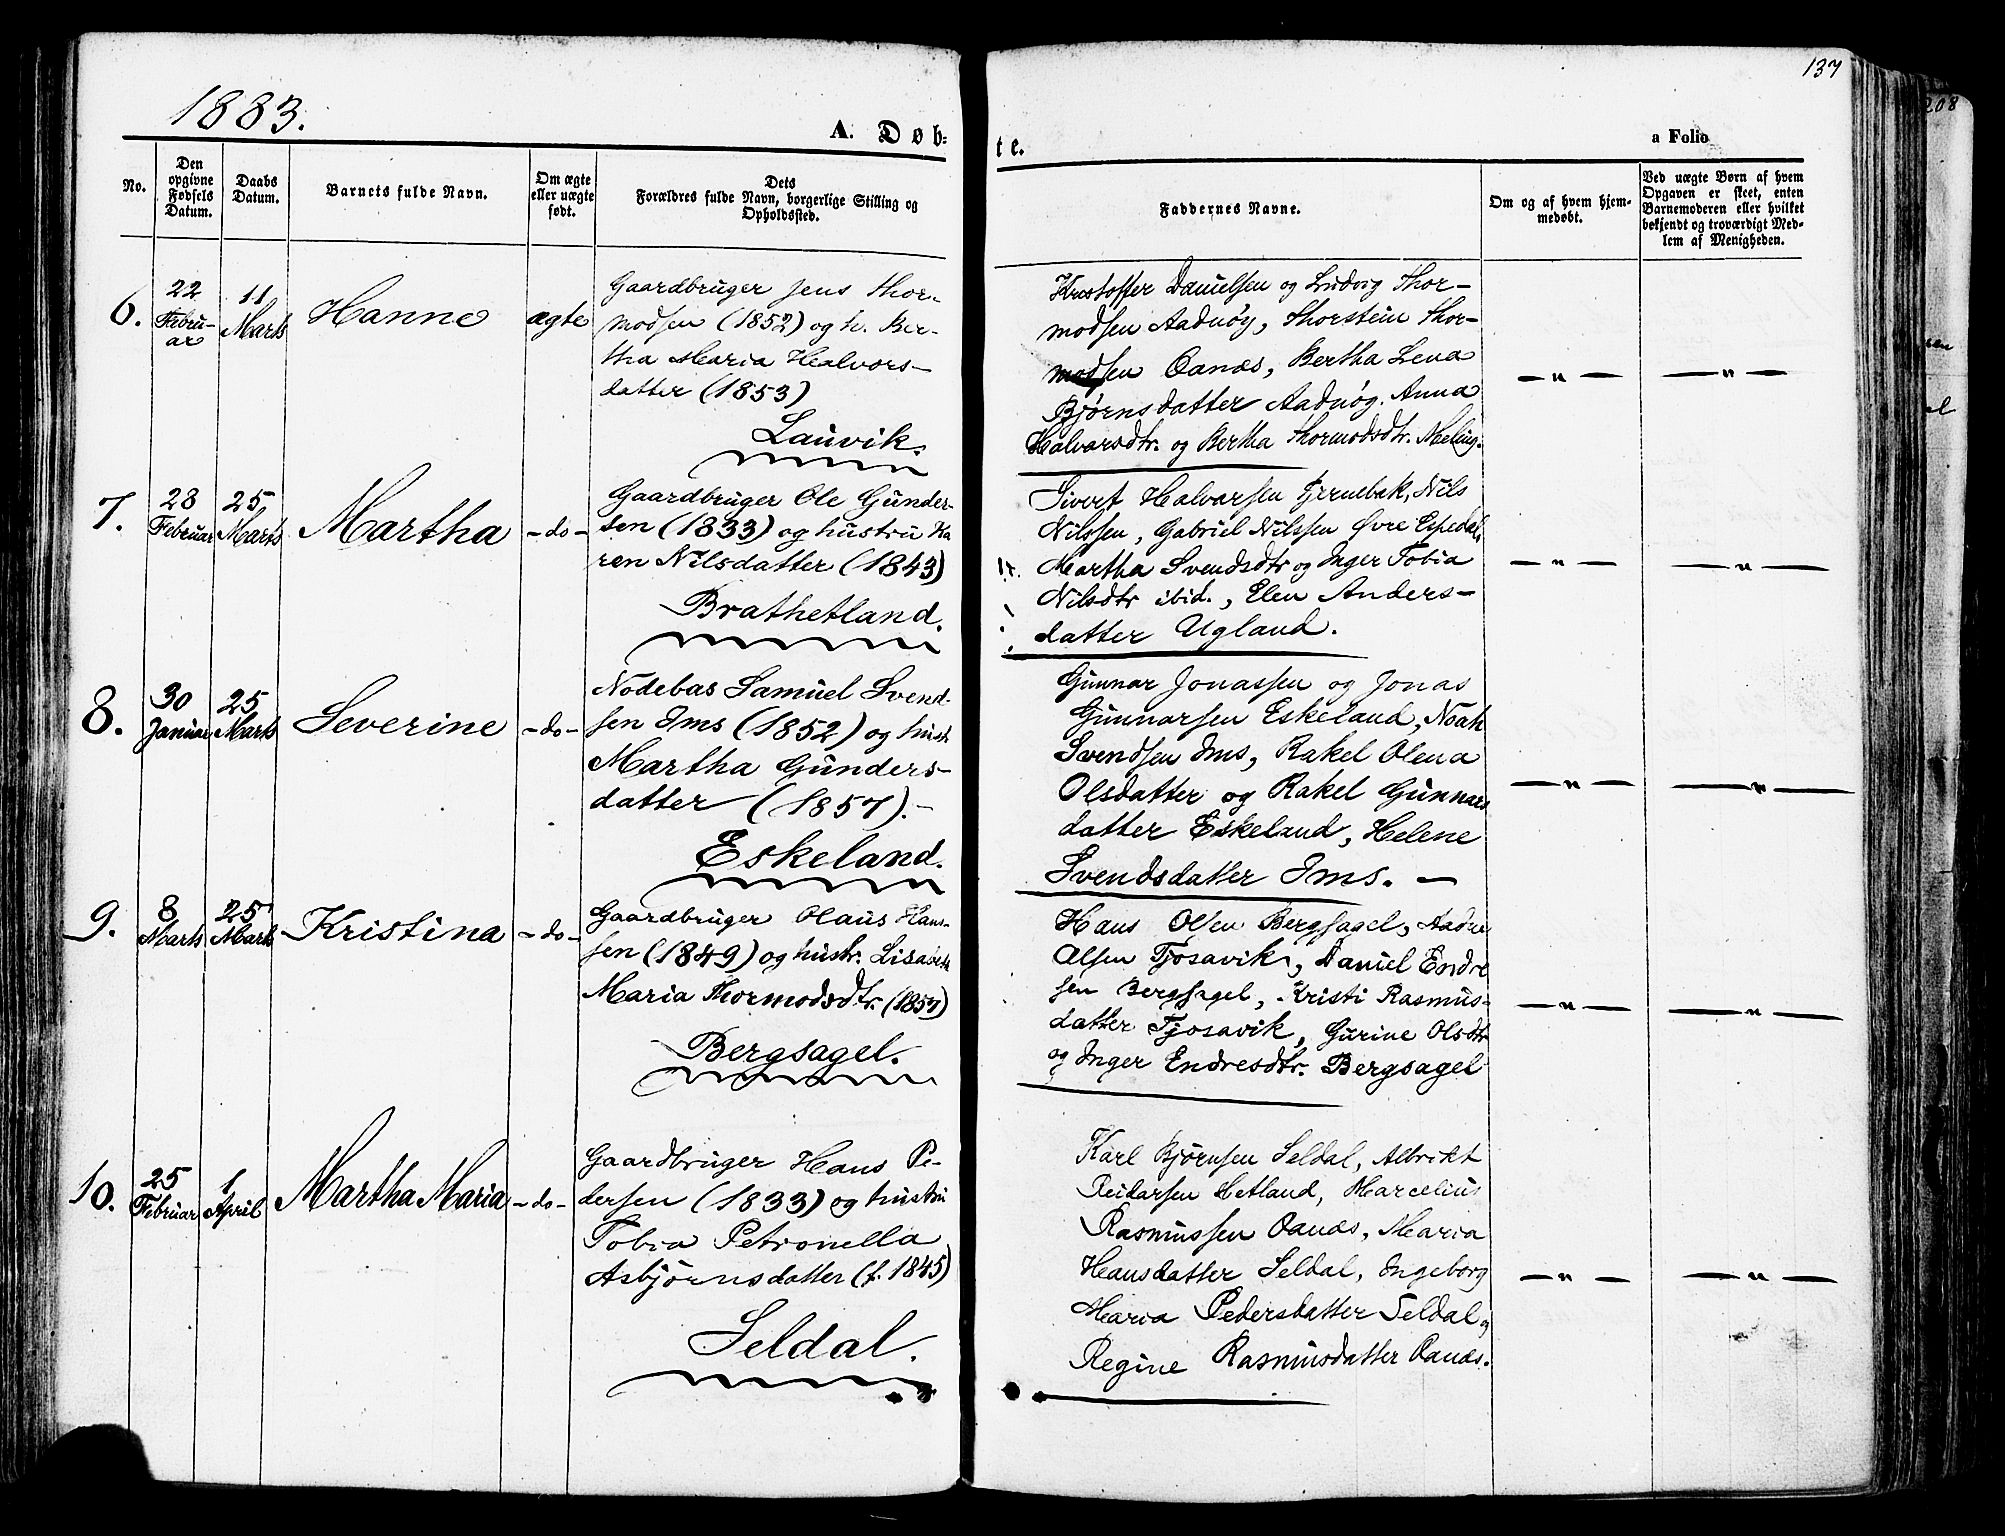 137
208
1883.
A. Døb:
te.
a Folio
No.
Den
opgivne
Fødsels
Datum.
Daabs
Datum.
Barnets fulde Navn.
Om ægte
eller uægte
født.
Dets
Forældres fulde Navn, borgerlige Stilling og
Opholdssted.
Faddernes Navne.
Om og af hvem hjem-
medøbt.
Ved uægte Børn af hvem
Opgaven er skeet, enten
Barnemoderen eller hvilket
bekjendt og troværdigt Med-
lem af Menigheden.
6.
22
Febru-
ar
11
Marts
Hanne
ægte
Gaardbruger Jens Thor-
modsen (1852) og h. Ber-
tha Maria Halvors-
datter (1853)
Lauvik.
Kristoffer Danielsen og Ludvig Thor-
modsen Aadnøy, Thorstein Thor-
modsen Oanæs, Bertha Lena
Bjørnsdatter Aadnøy. Anna
Halvarsdtr. og Bertha Thormodsdtr. Meling.
— " —
— " —
7.
28
Februar
25
Marts
Martha
-do-
Gaardbruger Ole Gunder-
sen (1833) og hustru Ka
ren Nilsdatter (1843)
Brathetland.
Sivert Halvarsen Fjernebak, Nils
Nilssen, Gabriel Nilssen Øvre Espedal,
Martha Svendsdtr og Inger Tobia
Nilsdtr ibid., Elen Anders-
datter Ugland.
— " —
— " —
8.
30
Januar
25
Marts
Severine
-do-
Nodebas Samuel Svend-
sen Ims (1852) og hustr
Martha Gunders-
datter (1857).-
Eskeland.
Gunnar Jonassen og Jonas
Gunnarsen Eskeland, Noah
Svendsen Ims, Rakel Olena
Olsdatter og Rakel Gunnars
datter Eskeland, Helene
Svendsdatter Ims. —
— " —
— " —
9.
8
Marts
25
Marts
Kristina
-do-
Gaardbruger Olaus Hans-
sen (1849) og hustr. Lisabeth
Maria Thormodsdtr. (1857)
Bergsagel.
Hans Olsen Bergsagel, Aadne
Olsen Tjosavik, Daniel Endre
sen Bergsagel, Kristi Rasmus-
datter Tjosavik, Gurine Olsdtr
og Inger Endresdtr. Bergsagel
— " —
— " —
10.
25
Februar
1
April
Martha Maria
-do-
Gaardbruger Hans Pe-
dersen (1833) og hustru
Tobia Petronella
Asbjørnsdatter (f. 1845)
Seldal.
Karl Bjørnsen Seldal, Albrikt
Reidarsen Hetland, Marcelius
Rasmussen Oanæs, Maria
Hansdatter Seldal, Ingeborg
Maria Pedersdatter Seldal og
Regine Rasmusdatter Oanæs.
— " —
— " —